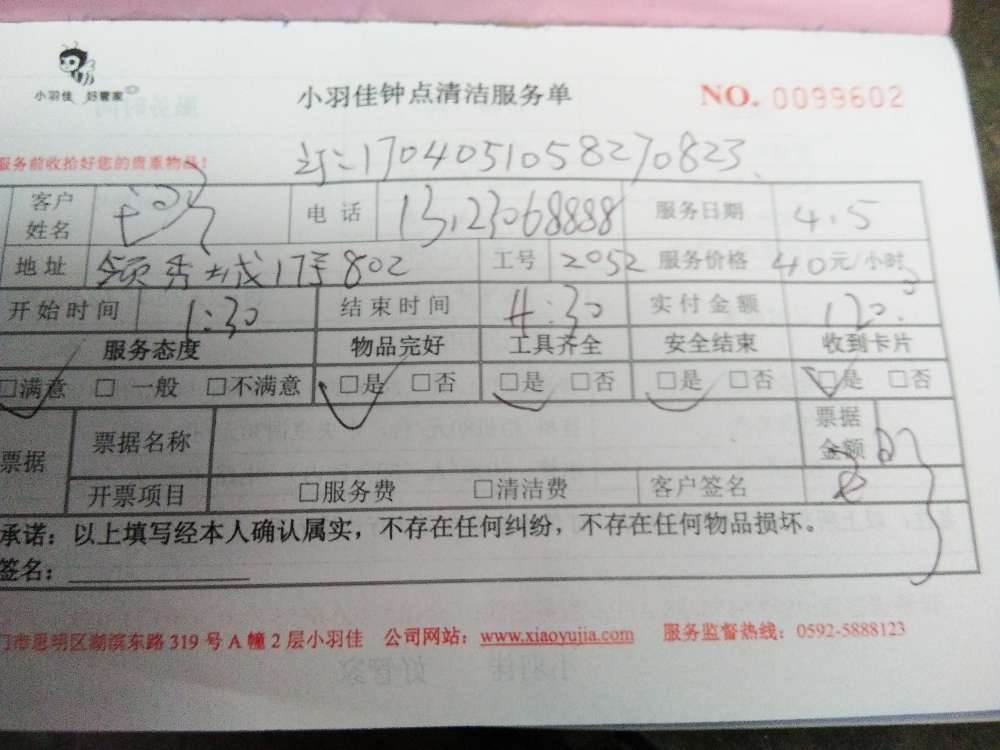 小羽佳 好管家
小羽佳钟点清洁服务单 NO. 0099602
服务前收拾好您的贵重物品！
订：1704051058270823
客户姓名 电话 13123068888 服务日期 4.5
地址 领秀城17号802 工号 2052 服务价格 40元/小时
开始时间 1:30 结束时间 4:30 实付金额 120.
服务态度 物品完好 工具齐全 安全结束 收到卡片
□满意 □一般 □不满意 □是 □否 □是 □否 □是 □否 □是 □否
票据 票据名称 票据金额
开票项目 □服务费 □清洁费 客户签名
承诺：以上填写经本人确认属实，不存在任何纠纷，不存在任何物品损坏。
签名：
门市思明区湖滨东路319号A幢2层小羽佳 公司网站：www.xiaoyujia.com 服务监督热线：0592-5888123